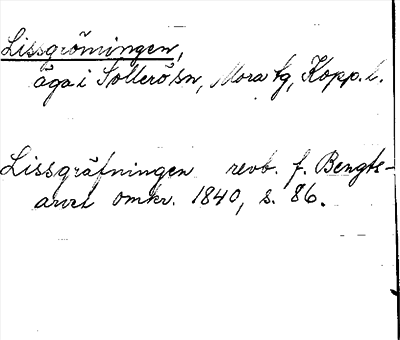 Lissgröningen,
äga i Sollerö sn, Mora tg, Kopp. l.
Lissgräfningen revb. f. Bengts-
arvet omkr. 1840, s. 86.